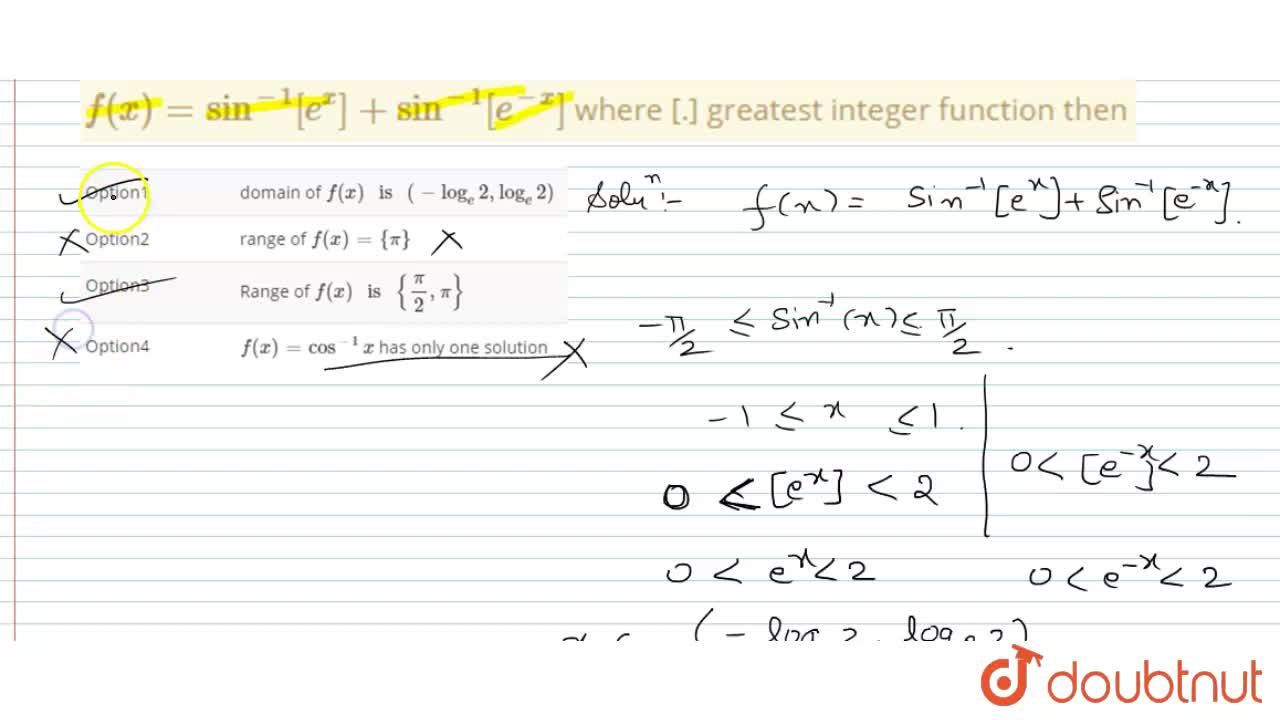 f(x) = sin⁻¹[eˣ] + sin⁻¹[e⁻ˣ] where [.] greatest integer function then
Option1 domain of f(x) is (−logₑ2, logₑ2)
Option2 range of f(x) = {π}
Option3 Range of f(x) is {π/2, π}
Option4 f(x) = cos⁻¹x has only one solution
Soluⁿ:- f(x) = Sin⁻¹[eˣ] + Sin⁻¹[e⁻ˣ].
-π/2 ≤ Sin⁻¹(x) ≤ π/2.
-1 ≤ x ≤ 1.
0 < [eˣ] < 2
0 < [e⁻ˣ] < 2
0 < eˣ < 2
0 < e⁻ˣ < 2
(- log 2, logₑ2)
doubtnut